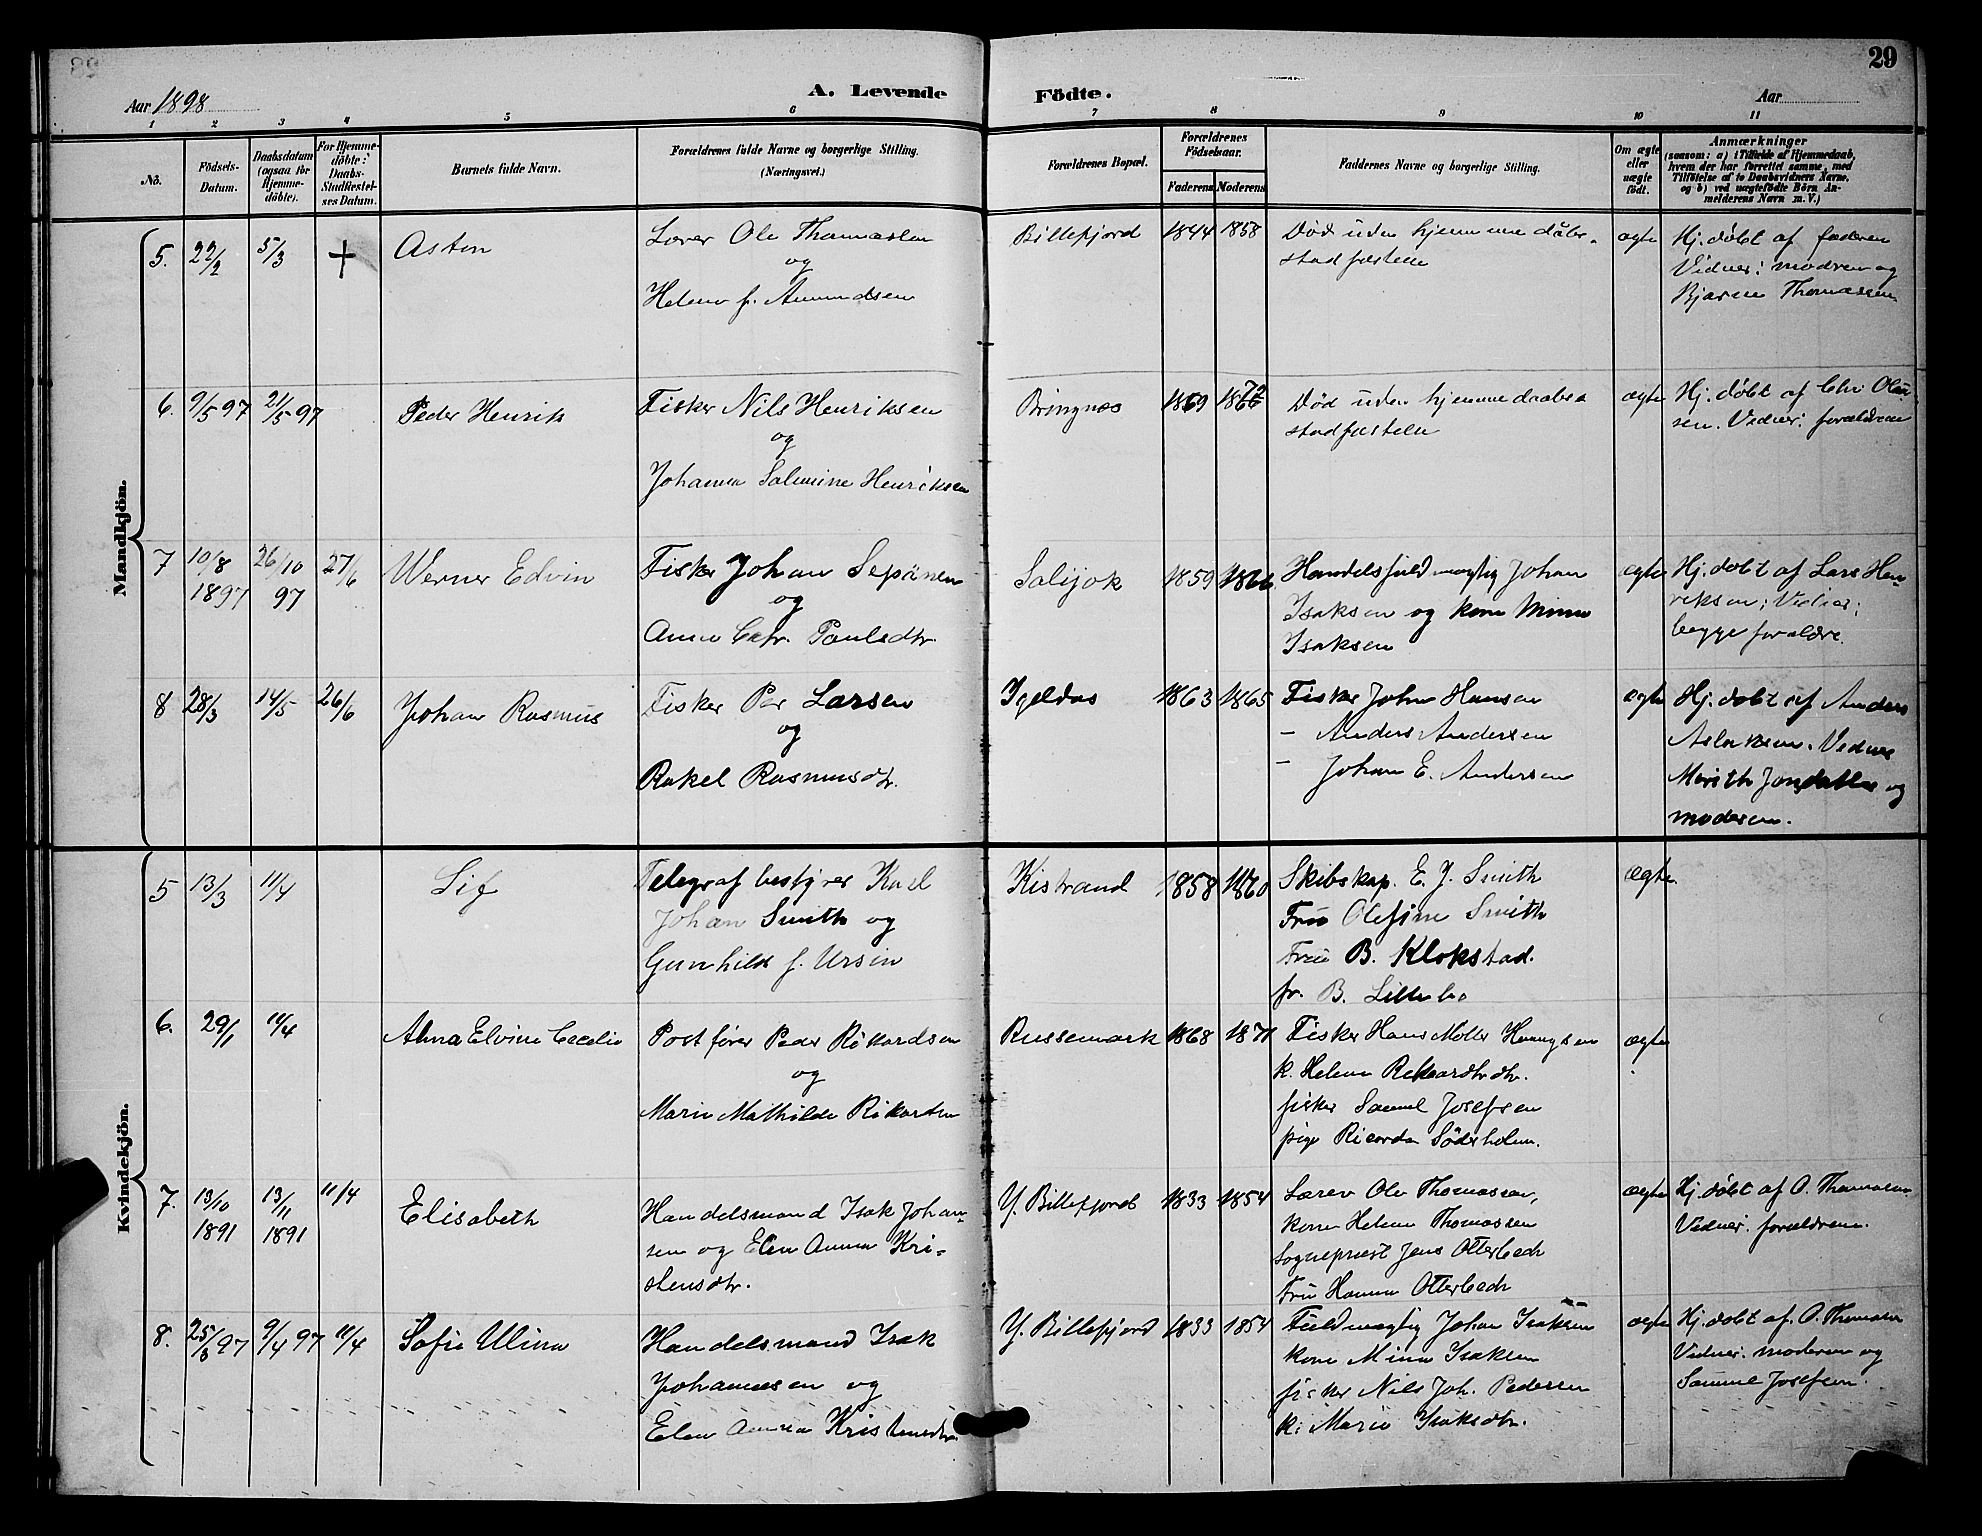 29
Aar 1898
A. Levende
Födte.
Aar
1 2 3 4 5 6 7 8 9 10 11
No.
Födsels-Datum.
Daabsdatum (ogsaa for Hjemme-döbte).
For Hjemme-döbte: Daabs-Stadfæstel-ses Datum.
Barnets fulde Navn.
Forældrenes fulde Navne og borgerlige Stilling.
(Næringsvei.)
Forældrenes Bopæl.
Forældrenes Födselsaar.
Faderens Moderens
Faddernes Navne og borgerlige Stilling.
Om ægte eller uægte födt.
Anmærkninger
(saasom: a) i Tilfælde af Hjemmedaab, hvem der har forrettet samme, med Tilföielse af to Daabsvidners Navne, og b) ved uægtefödte Börn Anmelderens Navn m. V.)
Mandkjön.
5. 22/2 5/3 +
Lærer Ole Thomassen
og
Helene f. Amundsen
Billefjord 1844 1858
Död uden hjemme dåbs-
stadfæstelse
ægte
Hj. döbt af faderen
Vidner: modren og
Bjarne Thomassen
6. 9/5 97 21/5 97
Peder Henrik
Fisker Nils Henriksen
og
Johanna Salmine Henriksen
Bringnes 1869
Död uden hjemmedaabs
stadfæstelse
ægte
Hj. döbt af Chr. Olau-
sen. Vidner: forældrene
7 10/8 1897 26/10 97 27/6
Werner Edvin
Fisker Johan
og
Anna Catr. Paulsdtr.
Salijok 1859 1866
Handelsfuldmægtig Johan
Isaksen og kone Minna
Isaksen
ægte
Hj. döbt af Lars Hen-
riksen; Vidner:
begge forældre.
8 28/3 14/5 26/6
Johan Rasmus
Fisker Per Larsen
og
Rakel Rasmusdtr.
Igeldas 1863 1865
Fisker John Hansen
- Anders Andersen
- Johan E. Andersen
ægte
Hj. döbt af Anders
Aslaksen. Vidner
Marith Jonsdatter og
moderen.
Kvindekjön.
5 13/3 11/4
Sif
Telegrafbestyrer Karl
Johan Smith og
Gunhild f. Ursin
Kistrand 1858 1860
Skibskap. E. J. Smith
Fru Olefine Smith
Fru B. Klokstad.
fr. B. Lillebo
ægte
6. 29/1 11/4
Alma Elvine Cecelie
Postförer Peder Rikardsen
og
Marie Mathilde Rikartsen
Russemark 1868 1871
Fisker Hans Möller
k. Helene
fisker Samuel Josefsen
pige Ricarda Söderholm.
ægte
7. 13/10 1891 13/11 1891 11/4
Elisabeth
Handelsmand Isak Johan-
sen og Elen Anna Kri-
stensdtr.
Y. Billefjord 1833 1854
Lærer Ole Thomassen,
kone Helene Thomassen
Sogneprest Jens Otterbech
Fru Hanna Otterbech
ægte
Hj. döbt af O. Thomassen
Vidner: forældrene.
8. 25/3 97 9/4 97 11/4
Sofie Ulina
Handelsmand Isak
Johannesen og
Elen Anna Kristensdtr.
Y. Billefjord 1833 1854
Fuldmægtig Johan Isaksen
kone Minna Isaksen
fisker Nils Joh. Pedersen
k: Marie Isaksdtr.
ægte
Hj. döbt af. O. Thomassen
Vidner: moderen og
Samuel Josefsen.